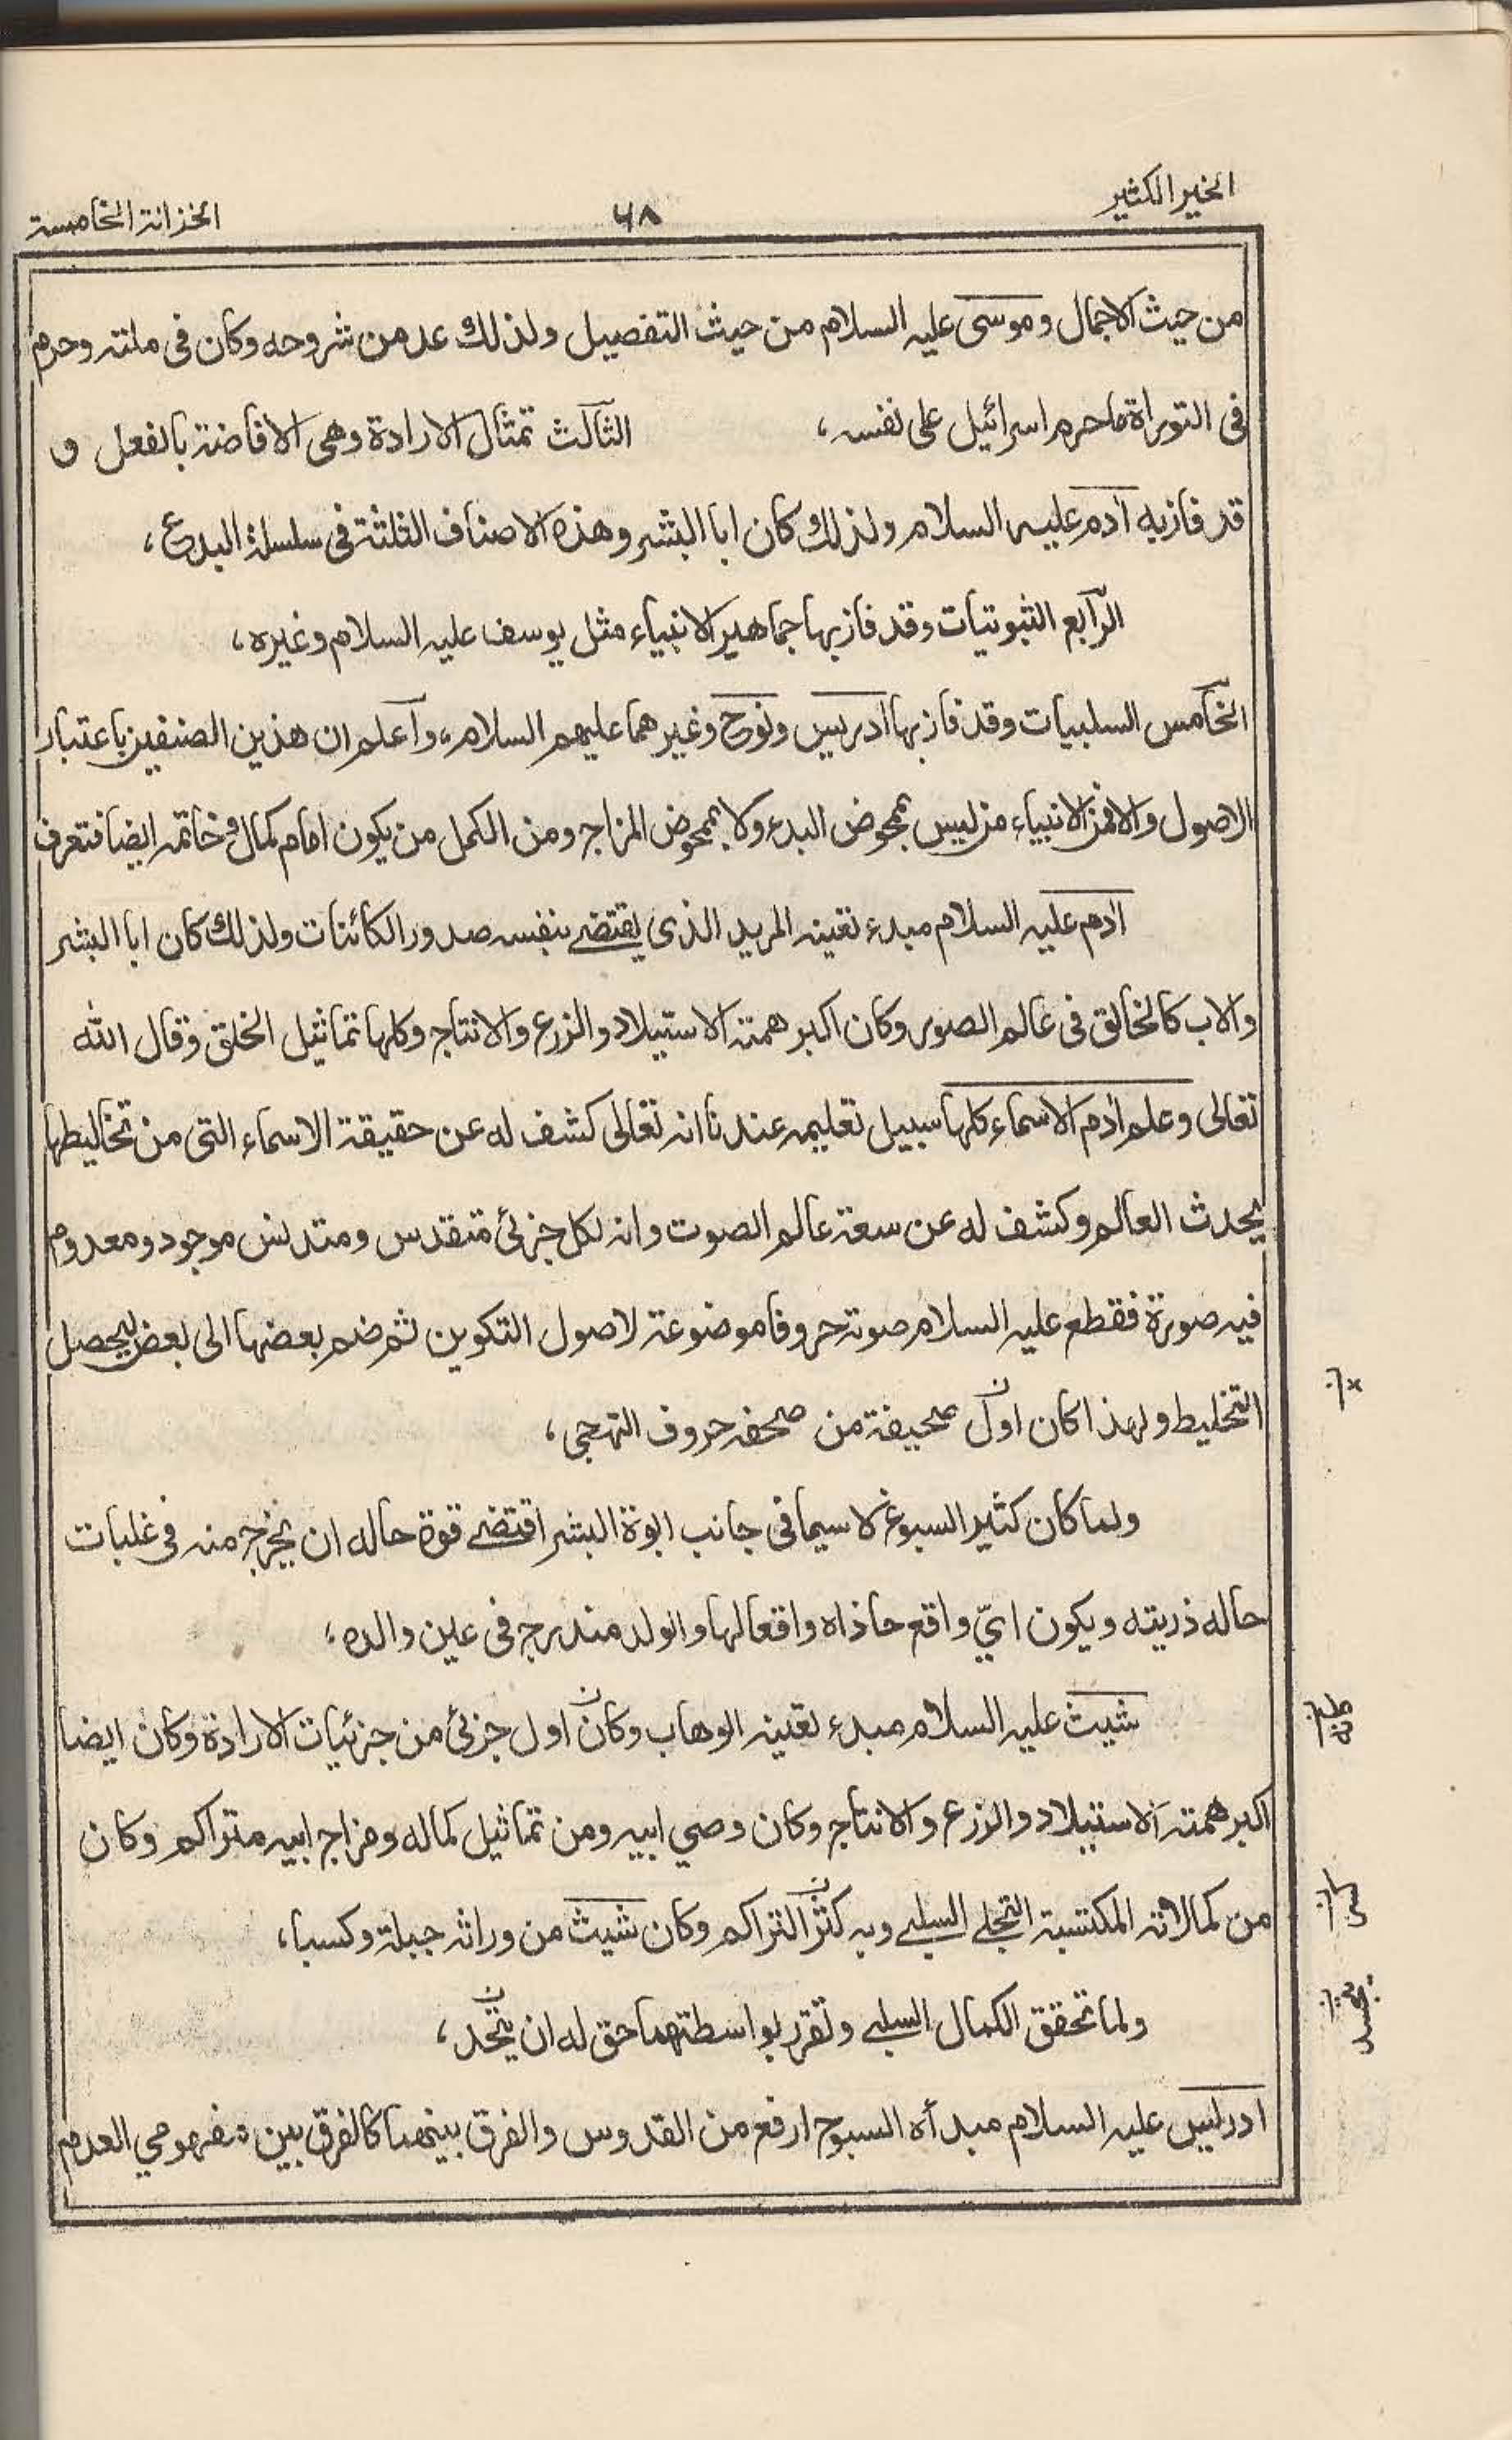 الخير الكثير
٦٨
الخزانة الخامسة
من حيث الاجمال وموسى عليه السلام من حيث التفصيل ولذلك عد من شروحه وكان فى ملته وحرم
فى التوراة ما حرم اسرائيل على نفسه، الثالث تمثال الارادة وهى الافاضة بالفعل و
قد فاز به آدم عليه السلام ولذلك كان ابا البشر وهذه الاصناف الثلثة فى سلسلة البدع،
الرابع الثبوتيات وقد فاز بها جماهير الانبياء مثل يوسف عليه السلام وغيره،
الخامس السلبيات وقد فاز بها ادريس ونوح وغيرهما عليهم السلام، واعلم ان هذين الصنفين باعتبار
الاصول والا فمن الانبياء من ليس بمحوض البدء ولا بمحوض المزاج ومن الكمل من يكون امام كمال وخاتمه ايضا فتعرف
آدم عليه السلام مبدء تعينه المريد الذى يقتضے بنفسه صدور الكائنات ولذلك كان ابا البشر
والاب كالخالق فى عالم الصور وكان اكبر همته الاستيلاد والزرع والانتاج وكلها تماثيل الخلق وقال الله
تعالى وعلم آدم الاسماء كلها سبيل تعليمه عندنا انه تعالى كشف له عن حقيقة الاسماء التى من تخاليطها
يحدث العالم وكشف له عن سعة عالم الصوت وانه لكل جزئى متقدس ومتدنس موجود ومعدوم
فيه صورة فقطع عليه السلام صوته حروفا موضوعة لاصول التكوين ثم ضم بعضها الى بعض ليحصل
التخليط ولهذا كان اول صحيفة من صحفه حروف التهجى،
ولما كان كثير السبوغ لا سيما فى جانب ابوة البشر اقتضے قوة حاله ان يخرج منه فى غلبات
حاله ذريته ويكون اىّ واقع حاذاه واقعا لها والولد مندرج فى عين والده،
شيث عليه السلام مبدء تعينه الوهاب وكان اول جزئى من جزئيات الارادة وكان ايضا
اكبر همته الاستيلاد والزرع والانتاج وكان وصي ابيه ومن تماثيل كماله ومزاج ابيه متراكم وكان
من كمالاته المكتسبة التجلے السلبے وبه كثر التراكم وكان شيث من وراثه جبلة وكسبا،
ولما تحقق الكمال السلبے وتقرر بواسطتهما حق له ان يتحد،
ادريس عليه السلام مبدأه السبوح ارفع من القدوس والفرق بينهما كالفرق بين مفهومي العدم